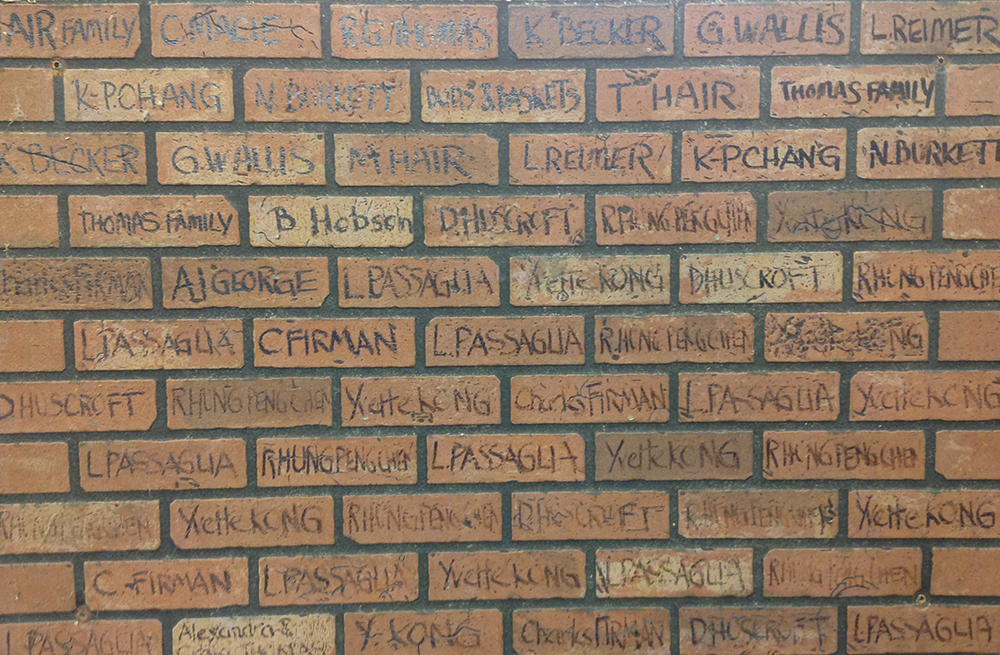 HAIR FAMILY C. MAGIE R.G. THOMAS K. BECKER G. WALLIS L. REIMER
K-P. CHANG N. BURKETT BUDS & BASKETS T. HAIR THOMAS FAMILY
K BECKER G. WALLIS M HAIR L. REIMER K-P CHANG N. BURKETT
THOMAS FAMILY B Hobson D. HUSCROFT R. HUNG PENG CHEN Yvette KONG
Charles FIRMAN AJ GEORGE L. PASSAGLIA Yvette KONG D HUSCROFT R HUNG PENG CHEN
L. PASSAGLIA C FIRMAN L. PASSAGLIA R HUNG PENG CHEN KONG
D HUSCROFT R HUNG PENG CHEN Yvette KONG Charles FIRMAN L. PASSAGLIA Yvette KONG
L. PASSAGLIA R HUNG PENG CHEN L. PASSAGLIA Yvette KONG R HUNG PENG CHEN
R HUNG PENG CHEN Yvette KONG R HUNG PENG CHEN D HUSCROFT R HUNG PENG CHEN Yvette KONG
C. FIRMAN L. PASSAGLIA Yvette KONG L. PASSAGLIA R HUNG PENG CHEN
L PASSAGLIA Alexandra & Y. KONG Charles FIRMAN D HUSCROFT L PASSAGLIA